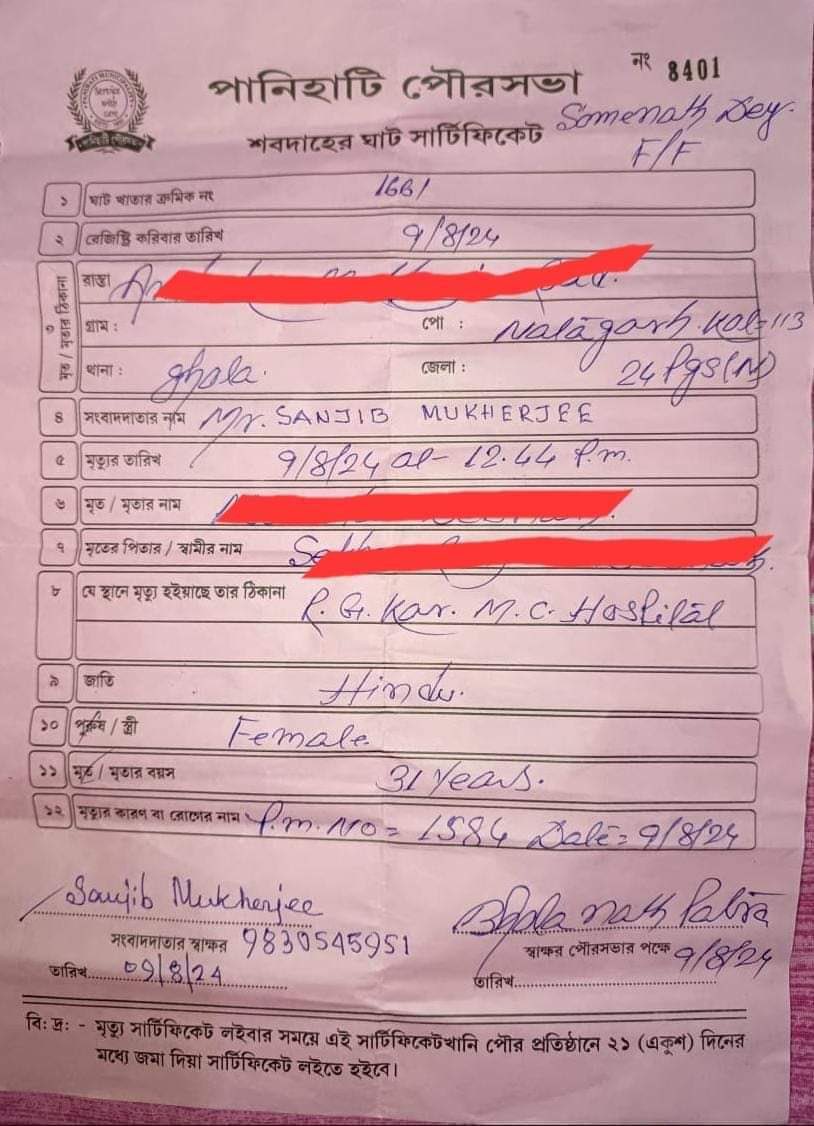 নং 8401
পানিহাটি পৌরসভা
শবদাহের ঘাট সার্টিফিকেট
Somenath Dey.
F/F
১ ঘাট খাতার ক্রমিক নং 1661
২ রেজিষ্ট্রি করিবার তারিখ 9/8/24
৩ মৃত / মৃতার ঠিকানা
রাস্তা
গ্রাম : পো : Natagarh. Kol=113
থানা : ghola. জেলা : 24 Pgs(N)
৪ সংবাদদাতার নাম Mr. SANJIB MUKHERJEE
৫ মৃত্যুর তারিখ 9/8/24 at- 12.44 P.m.
৬ মৃত / মৃতার নাম
৭ মৃতের পিতার / স্বামীর নাম
৮ যে স্থানে মৃত্যু হইয়াছে তার ঠিকানা R. G. Kar. M. C. Hospital
৯ জাতি Hindu.
১০ পুরুষ / স্ত্রী Female.
১১ মৃত / মৃতার বয়স 31 Years.
১২ মৃত্যুর কারণ বা রোগের নাম P.m. NO = 1584 Date = 9/8/24
Sanjib Mukherjee
Bhola nath Patra
সংবাদদাতার স্বাক্ষর 9830545951
স্বাক্ষর পৌরসভার পক্ষে 9/8/24
তারিখ 09/8/24
তারিখ
বিঃ দ্রঃ - মৃত্যু সার্টিফিকেট লইবার সময়ে এই সার্টিফিকেটখানি পৌর প্রতিষ্ঠানে ২১ (একুশ) দিনের
মধ্যে জমা দিয়া সার্টিফিকেট লইতে হইবে।